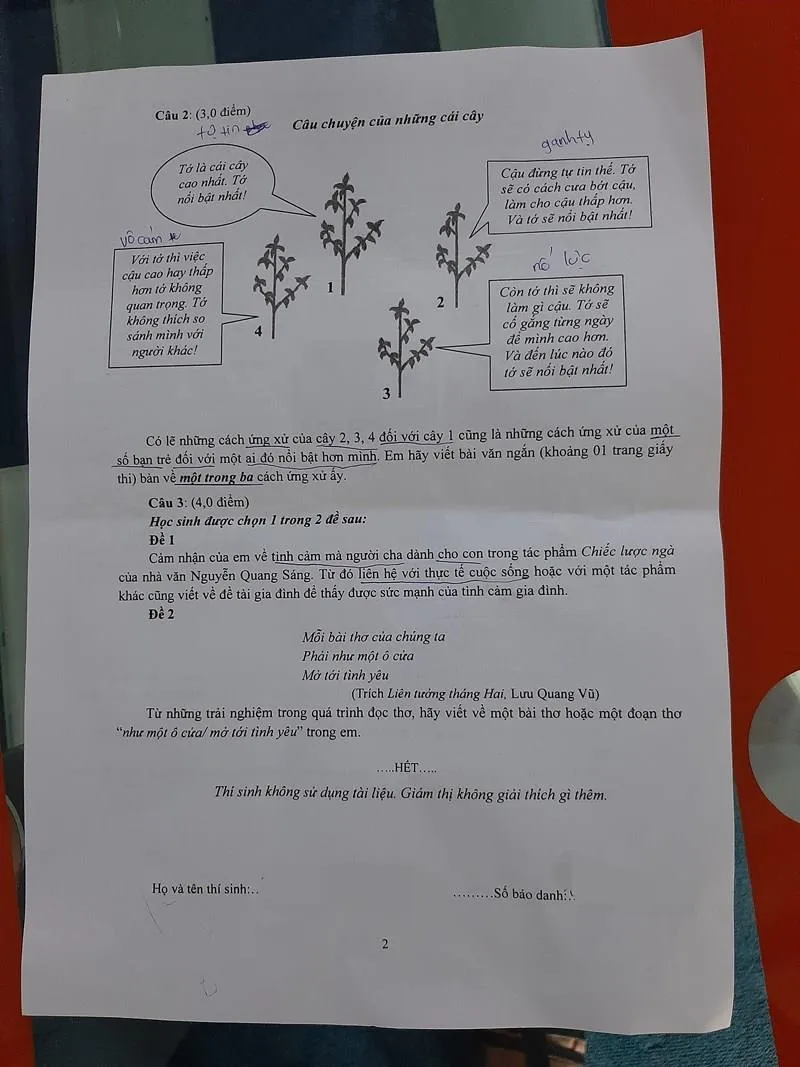 Câu 2: (3,0 điểm)
tự tin
Câu chuyện của những cái cây
Tớ là cái cây
cao nhất. Tớ
nổi bật nhất!
1
ganh tỵ
Cậu đừng tự tin thế. Tớ
sẽ có cách cưa bớt cậu,
làm cho cậu thấp hơn.
Và tớ sẽ nổi bật nhất!
2
vô cảm
Với tớ thì việc
cậu cao hay thấp
hơn tớ không
quan trọng. Tớ
không thích so
sánh mình với
người khác!
4
nỗ lực
Còn tớ thì sẽ không
làm gì cậu. Tớ sẽ
cố gắng từng ngày
để mình cao hơn.
Và đến lúc nào đó
tớ sẽ nổi bật nhất!
3
Có lẽ những cách ứng xử của cây 2, 3, 4 đối với cây 1 cũng là những cách ứng xử của một
số bạn trẻ đối với một ai đó nổi bật hơn mình. Em hãy viết bài văn ngắn (khoảng 01 trang giấy
thi) bàn về một trong ba cách ứng xử ấy.
Câu 3: (4,0 điểm)
Học sinh được chọn 1 trong 2 đề sau:
Đề 1
Cảm nhận của em về tình cảm mà người cha dành cho con trong tác phẩm Chiếc lược ngà
của nhà văn Nguyễn Quang Sáng. Từ đó liên hệ với thực tế cuộc sống hoặc với một tác phẩm
khác cũng viết về đề tài gia đình để thấy được sức mạnh của tình cảm gia đình.
Đề 2
Mỗi bài thơ của chúng ta
Phải như một ô cửa
Mở tới tình yêu
(Trích Liên tưởng tháng Hai, Lưu Quang Vũ)
Từ những trải nghiệm trong quá trình đọc thơ, hãy viết về một bài thơ hoặc một đoạn thơ
“như một ô cửa/ mở tới tình yêu” trong em.
.....HẾT.....
Thí sinh không sử dụng tài liệu. Giám thị không giải thích gì thêm.
Họ và tên thí sinh:..
.........Số báo danh:.
2